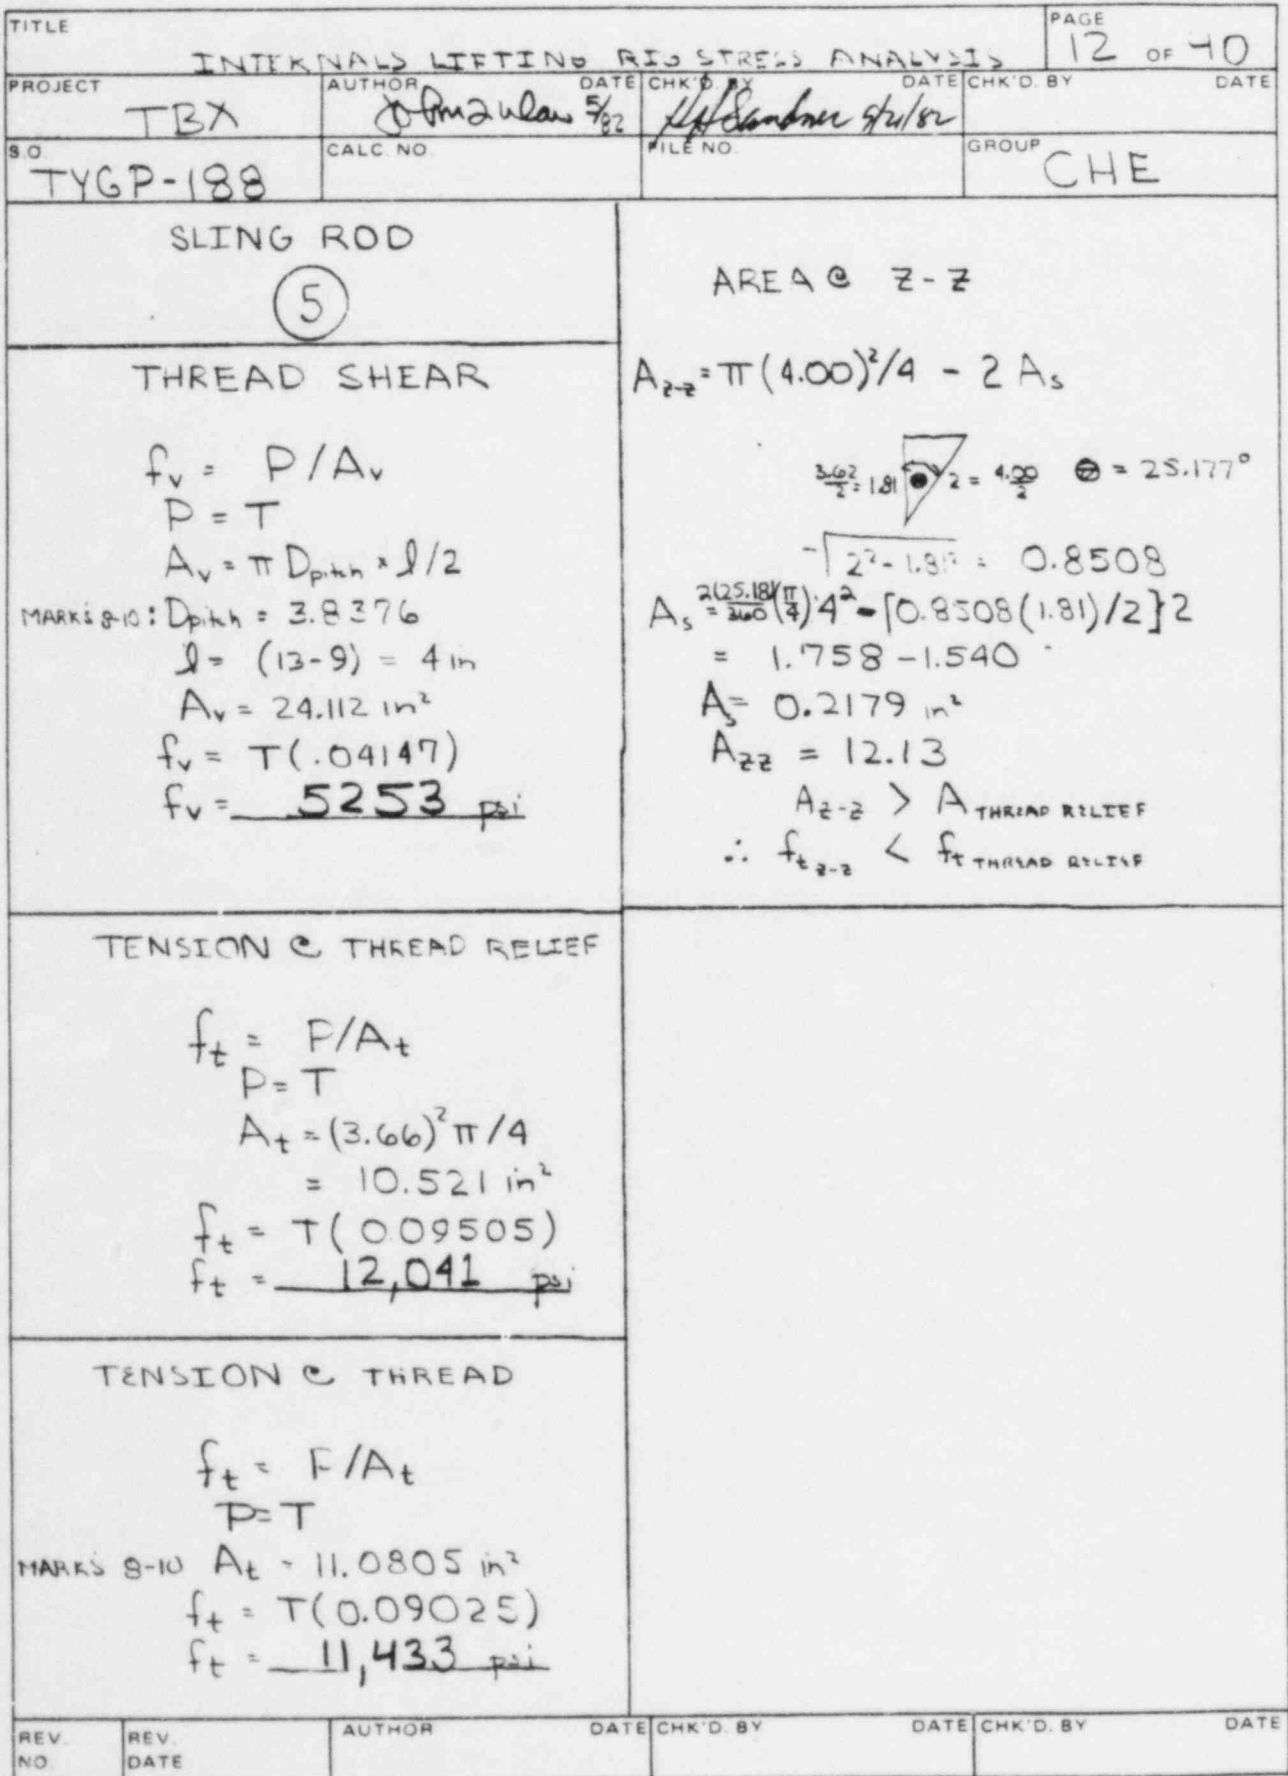 TITLE
INTERNALS LIFTING RIG STRESS ANALYSIS
PAGE
12 OF 40
PROJECT
TBX
AUTHOR DATE
5/82
CHK'D. BY DATE
5/21/82
CHK'D. BY DATE
S.O.
TYGP-188
CALC. NO.
FILE NO.
GROUP
CHE
SLING ROD
5
THREAD SHEAR
fv = P/Av
P = T
Av = π Dpitch × l/2
MARKS 8-10: Dpitch = 3.8376
l = (13-9) = 4 in
Av = 24.112 in²
fv = T(.04147)
fv = 5253 psi
TENSION @ THREAD RELIEF
ft = P/At
P = T
At = (3.66)² π/4
= 10.521 in²
ft = T(0.09505)
ft = 12,041 psi
TENSION @ THREAD
ft = P/At
P = T
MARKS 8-10 At = 11.0805 in²
ft = T(0.09025)
ft = 11,433 psi
AREA @ Z-Z
Az-z = π(4.00)²/4 - 2 As
3.62/2 = 1.81 2 = 4.00/2 θ = 25.177°
√2² - 1.81² = 0.8508
As = 2(25.18)/360 (π/4) 4² - [0.8508(1.81)/2] 2
= 1.758 - 1.540
As = 0.2179 in²
Azz = 12.13
Az-z > A THREAD RELIEF
∴ ft z-z < ft THREAD RELIEF
REV. NO
REV. DATE
AUTHOR DATE
CHK'D. BY DATE
CHK'D. BY DATE